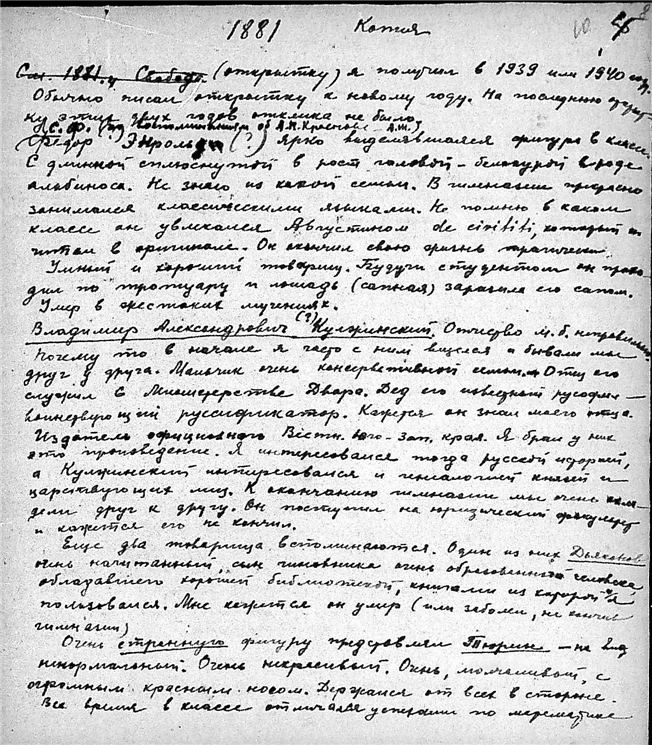 1881 Копия 4
См. 1881 у Свобода (открытку) я получил в 1939 или 1940 году.
Обычно писал открытку к новому году. На последнюю
этих двух годов отклика не было.
(С.Ф. (по воспоминаниям об А.Н. Краснове – А.Ш.)
Федор (?) Энрольди (?) ярко выделявшаяся фигура в классе.
С длинной сплюснутой в рост головой – белокурой вроде
альбиноса. Не знаю из какой семьи. В гимназии прекрасно
занимался классическими языками. Не помню в каком
классе он увлекался Августином de civititi, который он
читал в оригинале. Он окончил свою жизнь трагически.
Умный и хороший товарищ. Будучи студентом он прохо-
дил по тротуару и лошадь (сапная) заразила его сапом.
Умер в жестоких мучениях.
Владимир Александрович (?) Кулжинский. Отчество м.б. неправильно.
Почему то в начале я часто с ним виделся и бывали мы
друг у друга. Мальчик очень консервативной семьи. Отец его
служил в Министерстве Двора. Дед его известный русофил –
воинствующий руссификатор. Кажется он знал моего отца.
Издатель официозного Вістн. Юго-Зап. края. Я брал у них
это произведение. Я интересовался тогда русской историей,
а Кулжинский интересовался и генеалогией князей и
царствующих лиц. К окончанию гимназии мы очень охла-
дели друг к другу. Он поступил на юридический факультет
и кажется его не кончил.
Еще два товарища вспоминаются. Один из них Дьяконов
очень начитанный, сын чиновника очень образованного человека,
обладавшего хорошей библиотекой, книгами из которой и я
пользовался. Мне кажется он умер (или заболел, не кончив
гимназии)
Очень странную фигуру представлял Тюрин – на вид
ненормальный. Очень некрасивый. Очень молчаливый, с
огромным красным носом. Держался от всех в стороне.
Все время в классе отличался успехами по математике